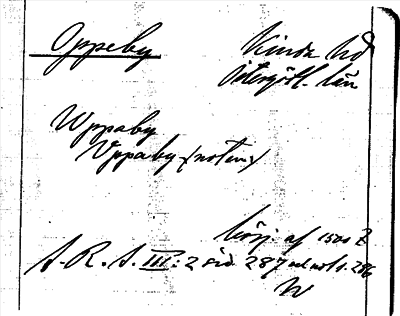 Oppeby
Kinda hd
Östergötl. län
Wppaby
Vppaby (noten)
börj. af 1500 t.
S. R. S. III: 2 sid. 287 not s. 286
W